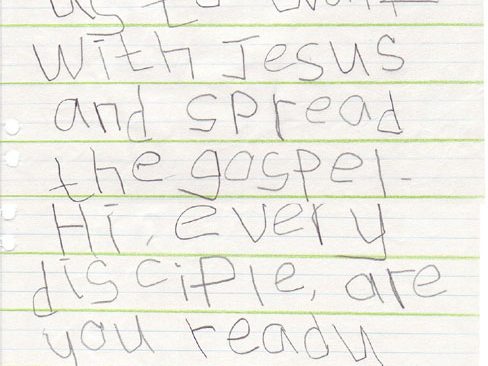 us to want
with Jesus
and spread
the gospel.
Hi, every
disciple, are
you ready